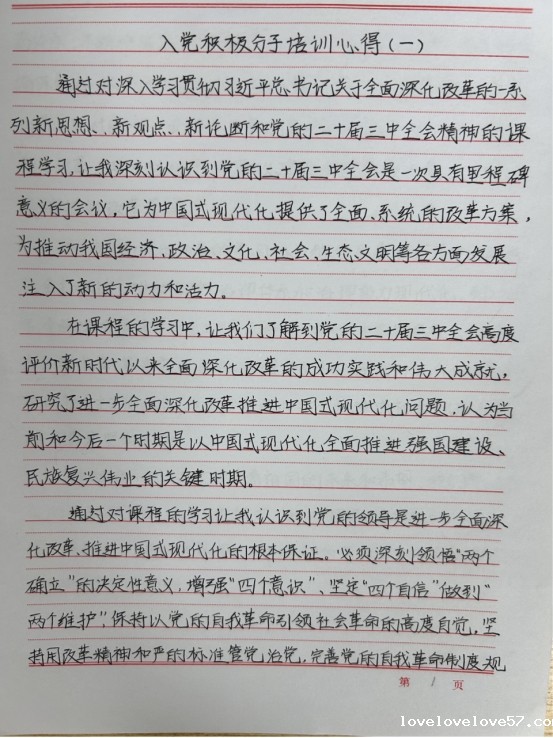 入党积极分子培训心得(一)
通过对深入学习贯彻习近平总书记关于全面深化改革的一系
列新思想、新观点、新论断和党的二十届三中全会精神的课
程学习,让我深刻认识到党的二十届三中全会是一次具有里程碑
意义的会议,它为中国式现代化提供了全面、系统的改革方案,
为推动我国经济、政治、文化、社会、生态文明等各方面发展
注入了新的动力和活力。
在课程的学习中,让我们了解到党的二十届三中全会高度
评价新时代以来全面深化改革的成功实践和伟大成就,
研究了进一步全面深化改革推进中国式现代化问题,认为当
前和今后一个时期是以中国式现代化全面推进强国建设、
民族复兴伟业的关键时期。
通过对课程的学习让我认识到党的领导是进一步全面深
化改革、推进中国式现代化的根本保证。必须深刻领悟“两个
确立”的决定性意义,增强“四个意识”、坚定“四个自信”做到“
两个维护”,保持以党的自我革命引领社会革命的高度自觉,坚
持用改革精神和严的标准管党治党,完善党的自我革命制度规
第 1 页
lovelovelove57.com